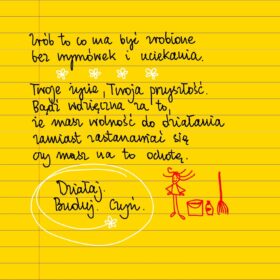 Zrób to co ma być zrobione
bez wymówek i uciekania.
Twoje życie, Twoja przyszłość.
Bądź wdzięczna na to,
że masz wolność do działania
zamiast zastanawiać się
czy masz na to ochotę.
Działaj.
Buduj. Czyń.